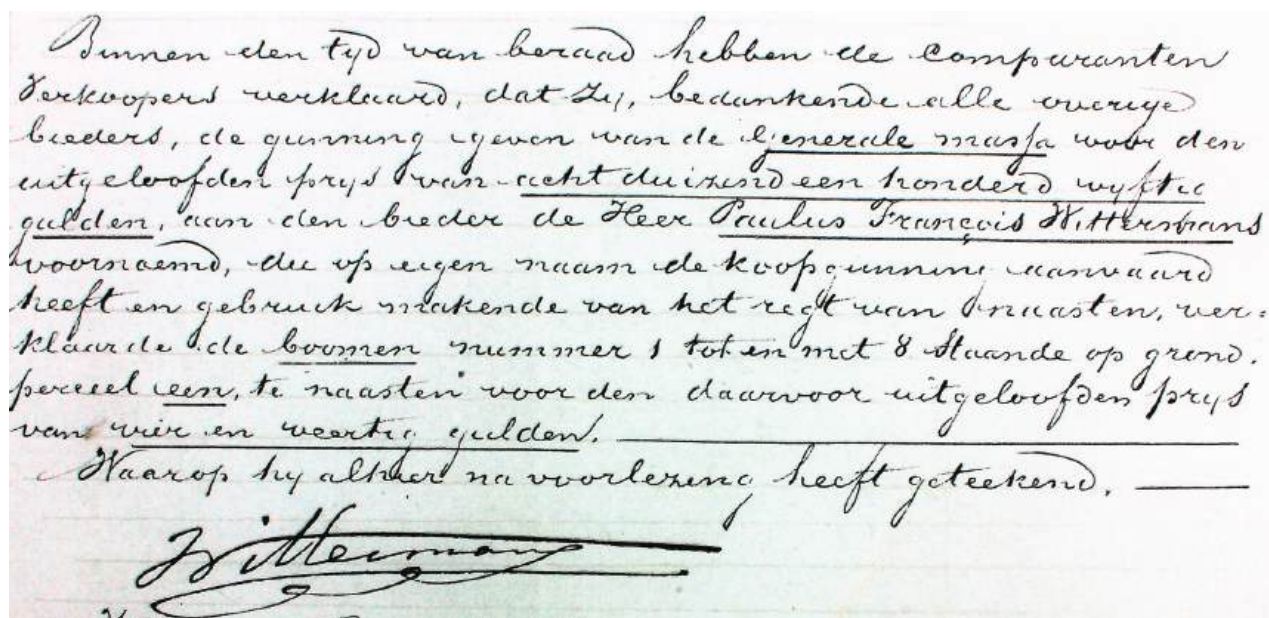 Binnen den tyd van beraad hebben de Comparanten
Verkoopers verklaard, dat Zy, bedankende alle overige
bieders, de gunning geven van de Generale massa voor den
uitgeloofden prys van acht duizend een honderd vyftig
gulden, aan den bieder de Heer Paulus François Wittermans
voornoemd, die op eigen naam de koopgunning aanvaard
heeft en gebruik makende van het regt van naasten, ver=
klaarde de boomen nummer 1 tot en met 8 Staande op grond.
perceel een, te naasten voor den daarvoor uitgeloofden prys
van vier en veertig gulden.
Waarop hy alhier na voorlezing heeft geteekend.
Wittermans